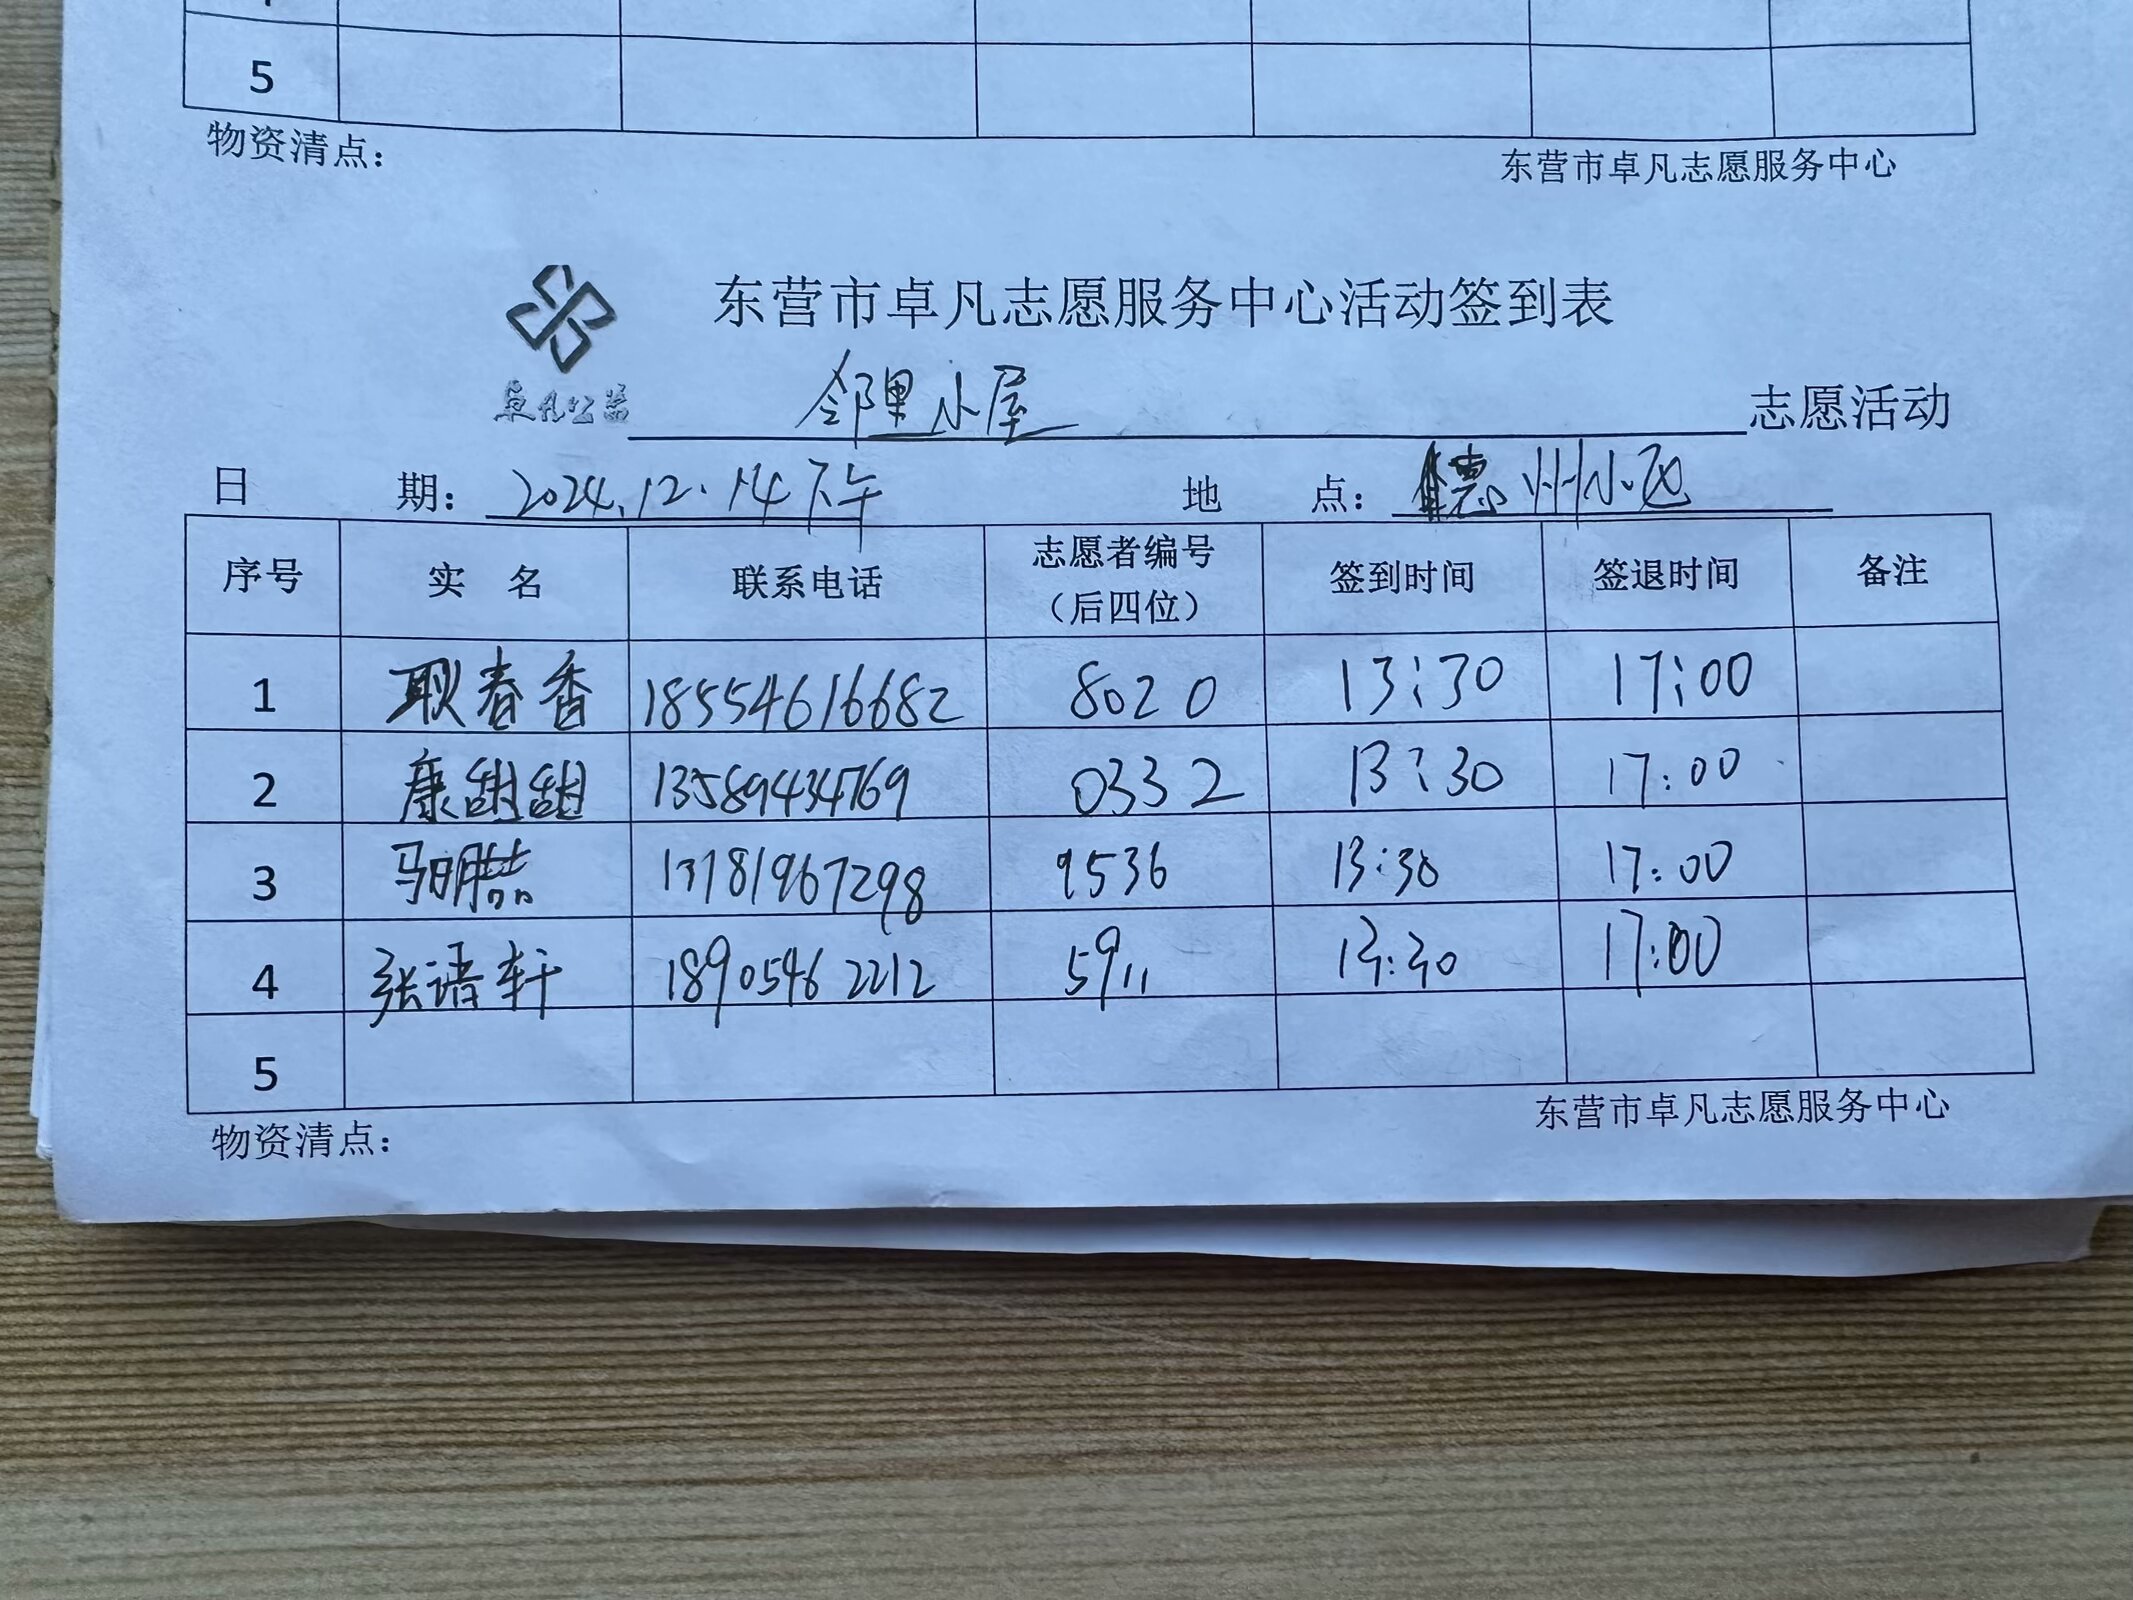 5
物资清点：
东营市卓凡志愿服务中心
东营市卓凡志愿服务中心活动签到表
卓凡公益
邻里小屋 志愿活动
日 期：2024.12.14下午 地 点：德州小区
序号 实 名 联系电话 志愿者编号（后四位） 签到时间 签退时间 备注
1 耿春香 18554616682 8020 13:30 17:00
2 康甜甜 13589434769 0332 13:30 17:00
3 13781967298 9536 13:30 17:00
4 张诸轩 18905462212 5911 13:30 17:00
5
物资清点：
东营市卓凡志愿服务中心